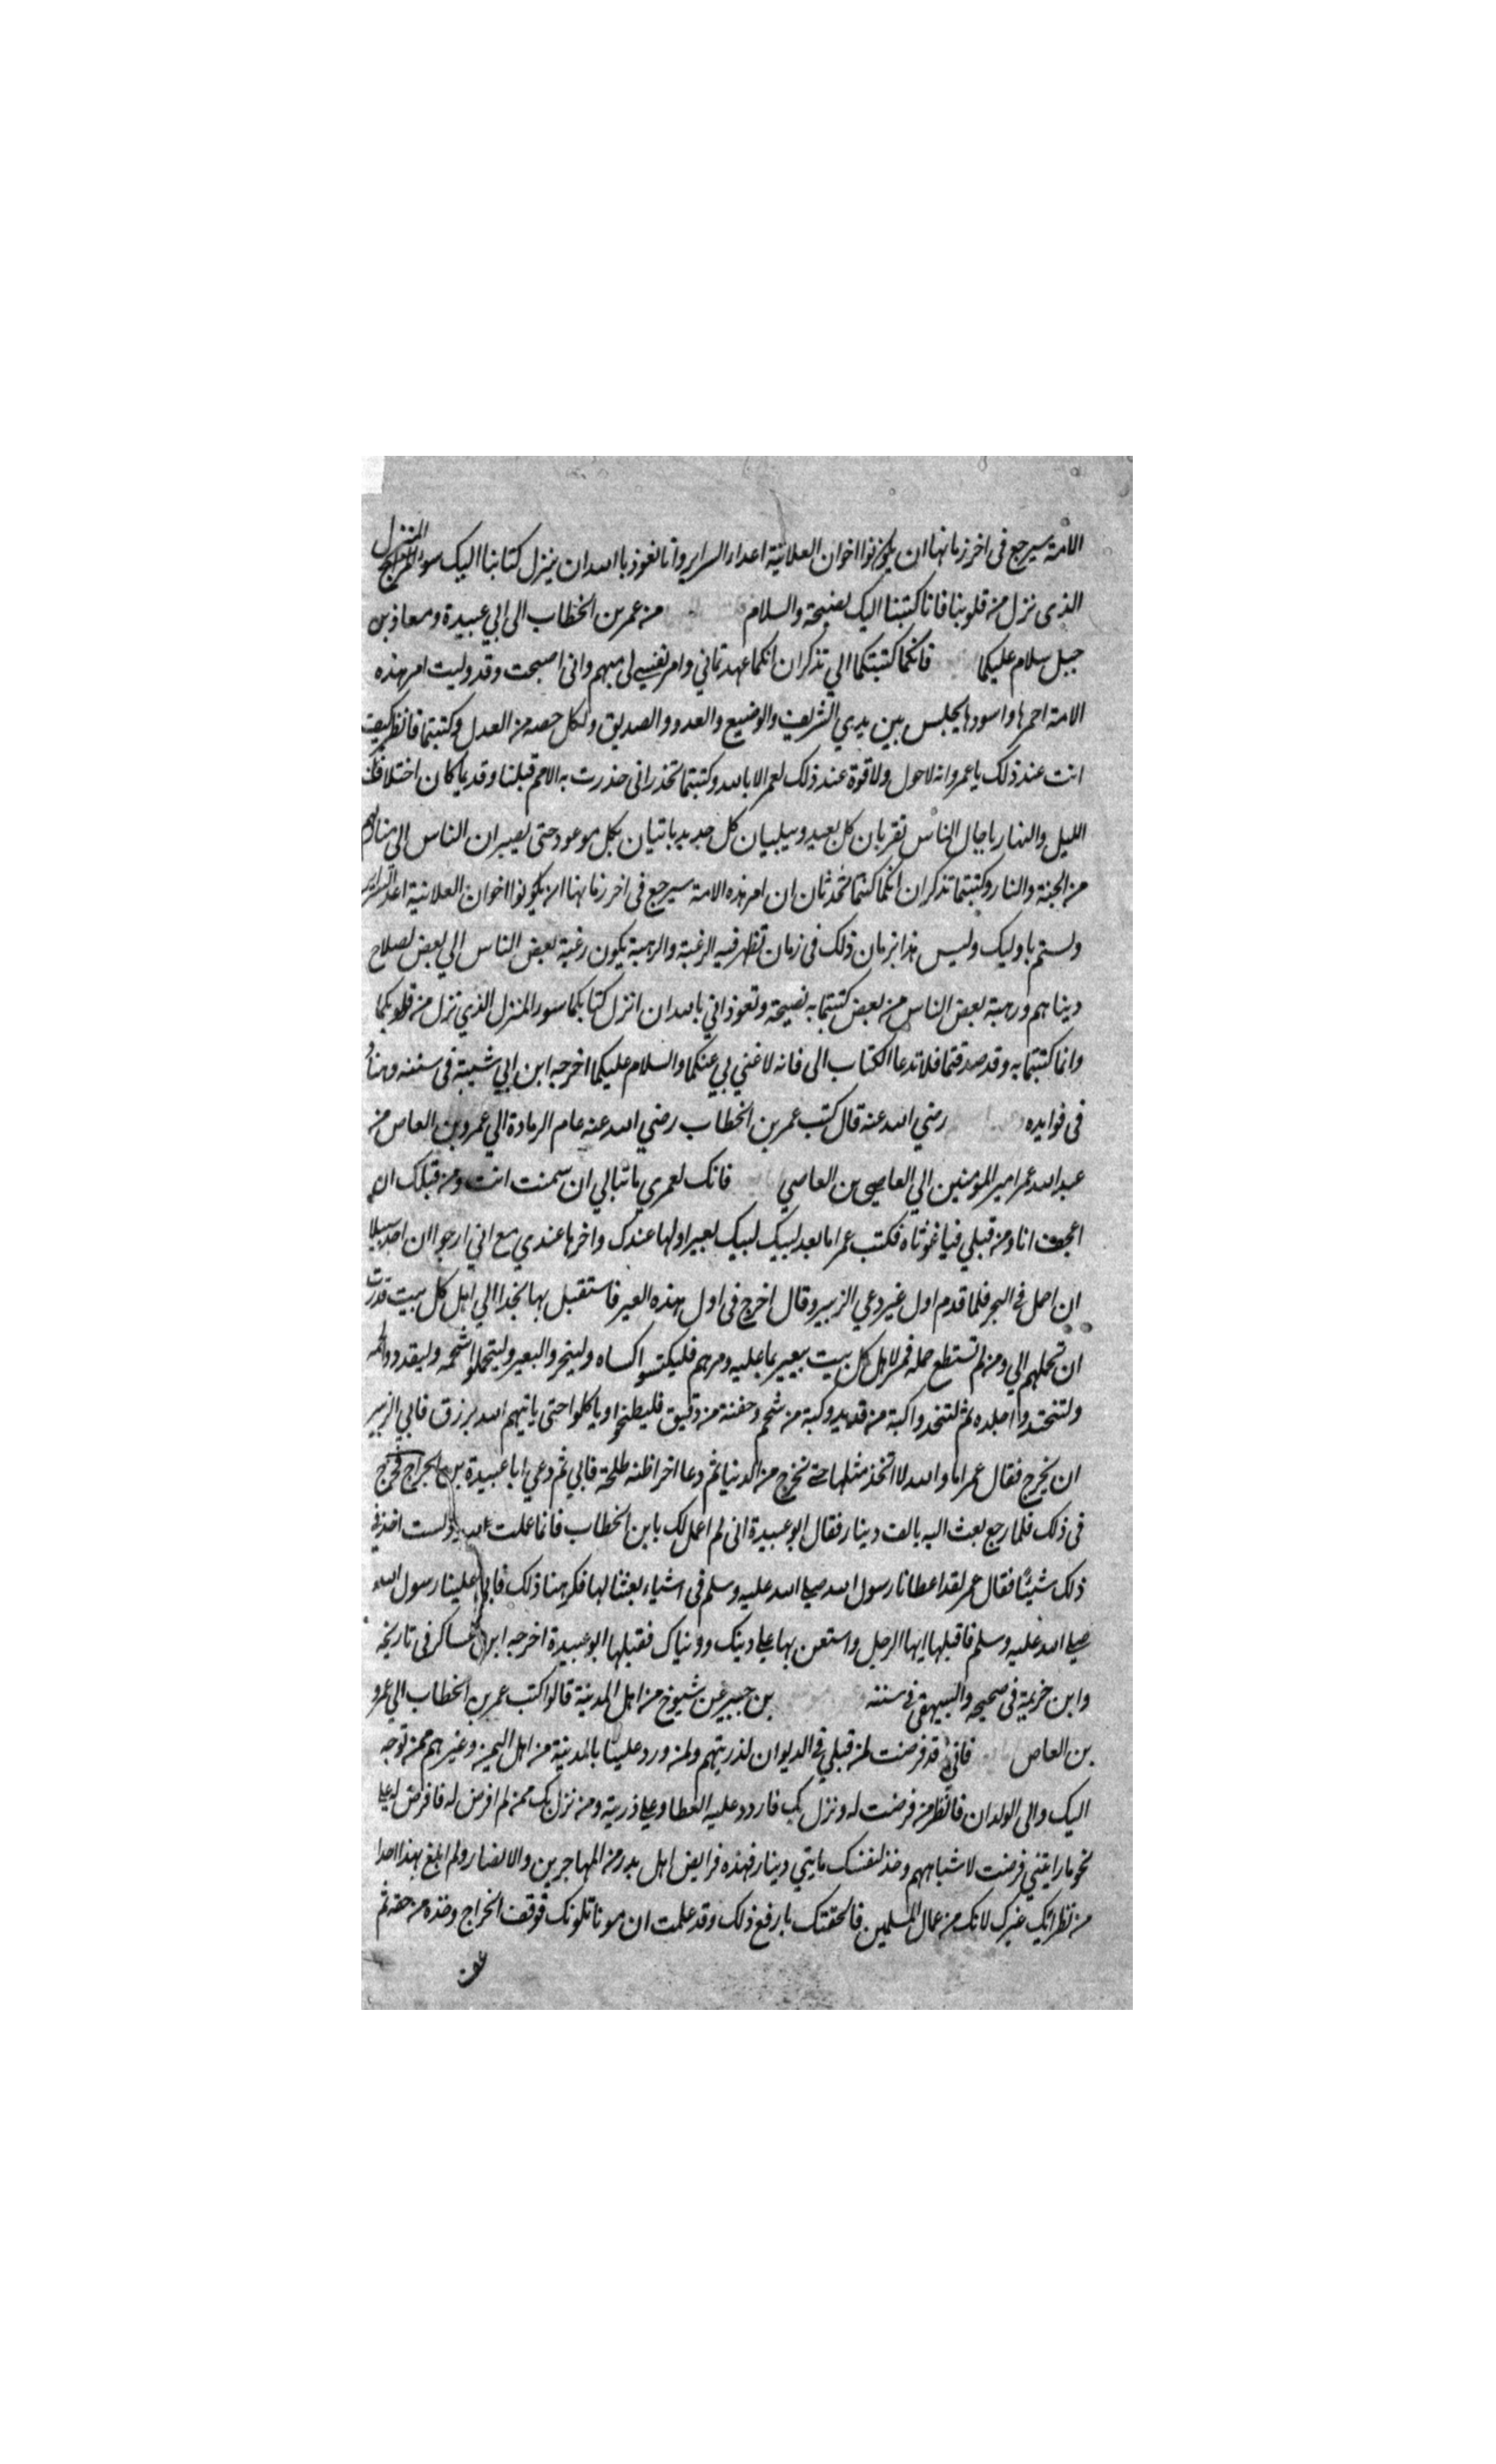 الامة سيرجع فى اخر زمانها ان يكونوا اخوان العلانية اعداء السراير وانا نعوذ باالله ان ينزل كتابنا اليك سوى المنزل
الذى نزل من قلوبنا فانا كتبنا اليك نصيحة والسلام من عمر بن الخطاب الى ابي عبيدة ومعاذ بن
جبل سلام عليكما فانكما كتبتكما الي تذكران انكما عهدتماني وامر نفسي لى مبهم وانى اصبحت وقد وليت امر هذه
الامة احمرها واسودها يجلس بين يدي الشريف والوضيع والعدو والصديق ولكل حصه من العدل وكتبتما فانظر كيف
انت عند ذلك يا عمر وانه لا حول ولا قوة عند ذلك لعمر الا بالله وكتبتما تحذرانى حذرت به الامم قبلنا وقديما كان اختلاف
الليل والنهار باجال الناس تقربان كل بعيد ويبليان كل جديد ياتيان بكل موعود حتى يصيران الناس الى منازلهم
من الجنة والنار وكتبتما تذكران انكما كنتما تحدثان ان امر هذه الامة سيرجع فى اخر زمانها ان يكونوا اخوان العلانية اعداء السراير
ولستم باوليك وليس هذا بزمان ذلك فى زمان تظهر فيه الرغبة والرهبة يكون رغبة بعض الناس الي بعض لصلاح
ديناهم ورهبة بعض الناس من بعض كتبتما به نصيحة وتعوذاني بالله ان انزل كتابكما سور المنزل الذي نزل من قلوبكما
وانما كتبتما به وقد صدقتما فلا تدعا الكتاب الى فانه لا غني بي عنكما والسلام عليكما اخرجه ابن ابي شيبة فى سننه وهناد
فى فوايده رضي الله عنه قال كتب عمر بن الخطاب رضي الله عنه عام الرمادة الي عمرو بن العاص من
عبد الله عمر امير المؤمنين الي العاصي بن العاصي فانك لعمري ما تبالي ان سمنت انت ومن قبلك ان
اعجف انا ومن قبلي فيا غوثاه فكتب عمر اما بعد لبيك لبيك لعير اولها عندك واخرها عندي مع اني ارجوا ان اجد سبيلا
ان احمل فى البحر فلما قدم اول غير دعي الزبير وقال اخرج فى اول هذه العير فاستقبل بها نجدا الي اهل كل بيت قدرت
ان تحملهم الي ومن لم تستطع حمله فمر لاهل كل بيت ببعير بما عليه ومرهم فليكتسوا كساه ولينحروا البعير وليتحملوا شحمه وليقددوا لحمه
ولتتخذوا جلده ثم لتتخذوا كبة من قديد وكبة من شحم وحفنة من دقيق فليطبخوا وياكلوا حتى ياتيهم الله برزق فابي الزبير
ان يخرج فقال عمر اما والله لا اتخذ مثلها حتى تخرج من الدنيا ثم دعا اخر اظنه طلحة فابي ثم دعي ابا عبيدة بن الجراح فخرج
فى ذلك فلما رجع بعث اليه بالف دينار فقال ابو عبيدة انى لم اعمل لك يا بن الخطاب فانما عملت لله ولست اخذ في
ذلك شيئا فقال عمر لقد اعطانا رسول الله صلى الله عليه وسلم فى اشياء بعثنا لها فكرهنا ذلك فابى علينا رسول الله
صلى الله عليه وسلم فاقبلها ايها الرجل واستعن بها على دينك ودنياك فقبلها ابو عبيدة اخرجه ابن عساكر فى تاريخه
وابن خزيمة فى صحيحه والبيهقى فى سننه بن جبير عن شيوخ من اهل المدينة قالوا كتب عمر بن الخطاب الي عمرو
بن العاص فانى قد فرضت لمن قبلي فى الديوان لذريتهم ولمن ورد علينا بالمدينة من اهل اليمن وغيرهم ممن توجه
اليك والى الولدان فانظر من فرضت له ونزل بك فاردد عليه العطا وعلى ذريته ومن نزل بك ممن لم افرض له فافرض له على
نحو ما رايتني فرضت لاشباههم وخذ لنفسك مايتي دينار فهذه فرايض اهل بدر من المهاجرين والانصار ولم ابلغ بهذا احدا
من نظرائك غيرك لانك من عمال المسلمين فالحقتك بارفع ذلك وقد علمت ان مونا تلونك فوقف الخراج وخذه من حقه ثم
عف